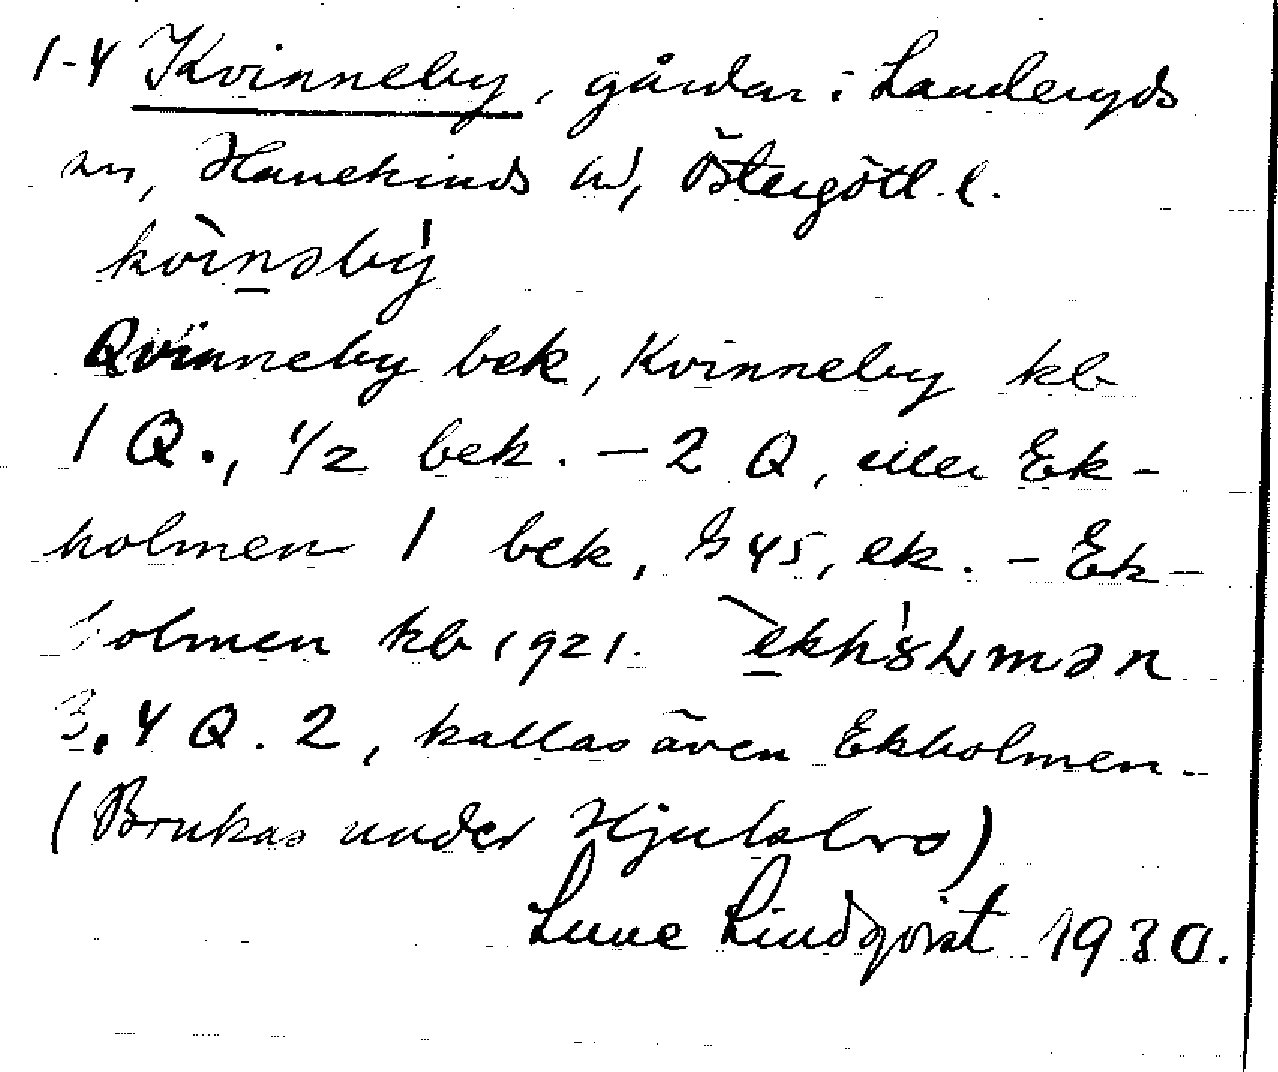 1-4 Kvinneby, gårdar i Landeryds
sn, Hanekinds hd, Östergötl. l.
kvìnəbý
Qvinneby bek, Kvinneby kb
1 Q., 1/2 bek. – 2 Q, eller Ek-
holmen 1 bek, 45, ek. – Ek-
holmen kb 1921.
3, 4 Q. 2, kallas även Ekholmen.
(Brukas under Hjulsbro)
Sune Lindqvist 1930.